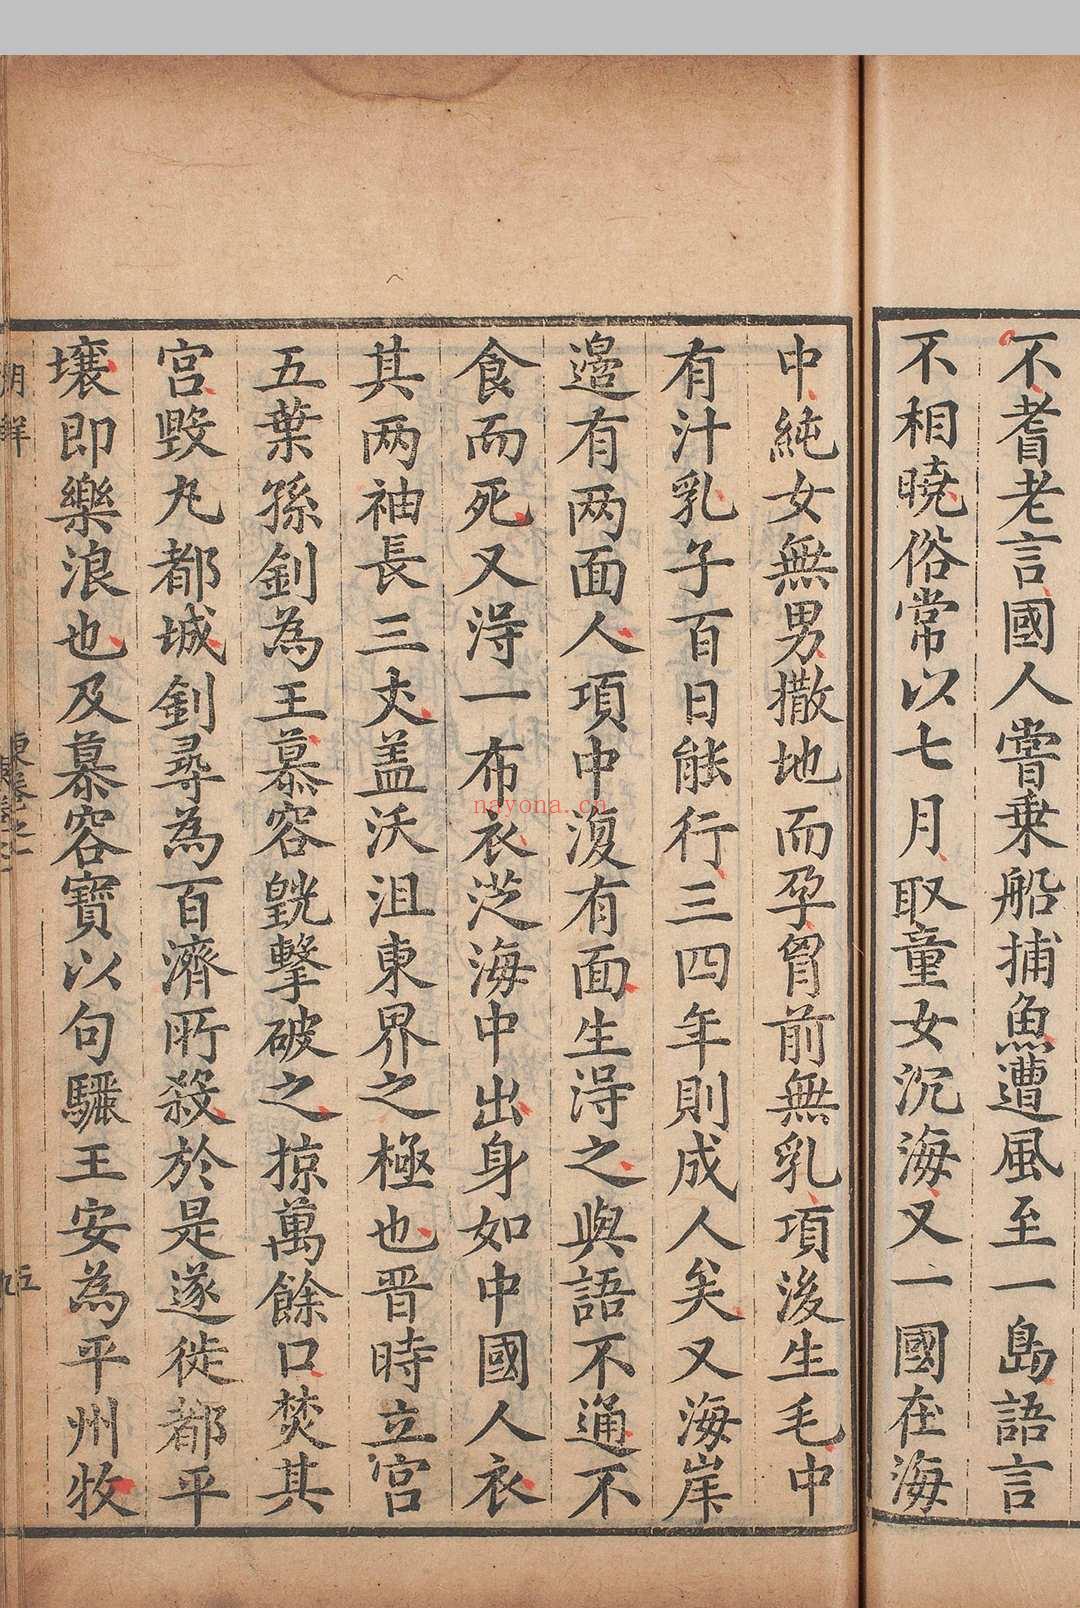 不耆老言國人嘗乗船捕魚遭風至一島語言
不相曉俗常以七月取童女沉海又一國在海
中純女無男撒地而孕胷前無乳項後生毛中
有汁乳子百日能行三四年則成人矣又海岸
邉有两面人項中復有面生淂之與語不通不
食而死又淂一布衣従海中出身如中國人衣
其两袖長三丈盖沃沮東界之極也晋時立宫
五葉孫釗為王慕容皝擊破之掠萬餘口焚其
宫毁丸都城釗尋為百濟所殺於是遂徙都平
壤即樂浪也及慕容寶以句驪王安為平州牧
朝鮮
nayona.cn